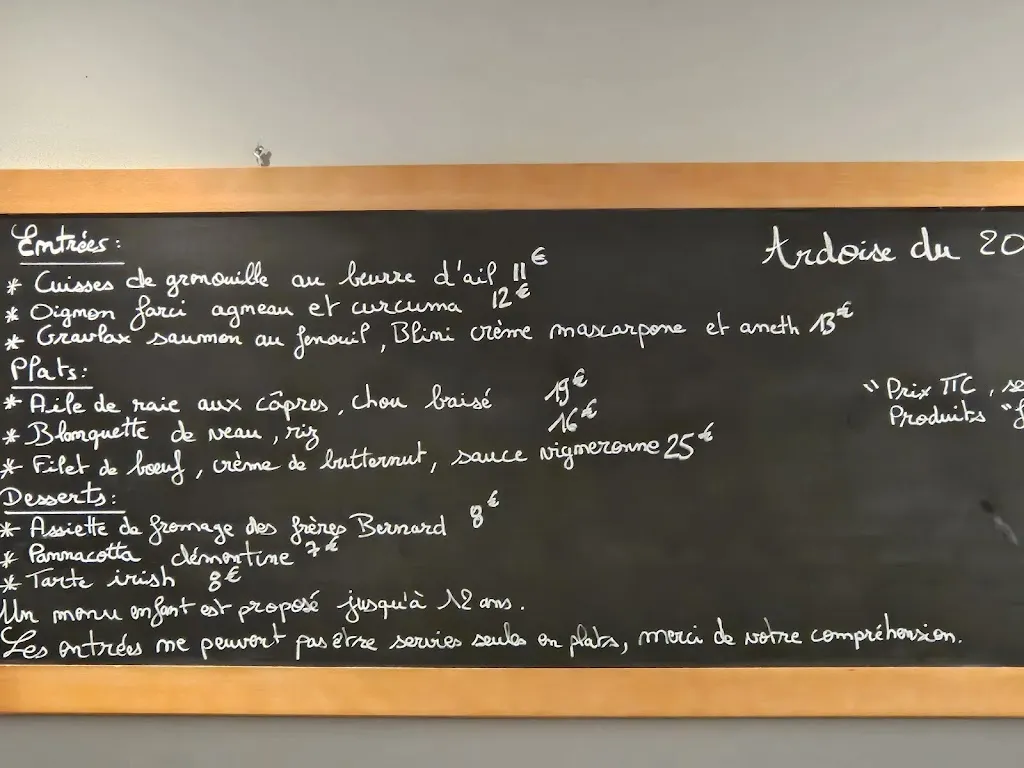 Entrées :
Ardoise du 20
* Cuisses de grenouille au beurre d'ail 11€
* Oignon farci agneau et curcuma 12€
* Gravlax saumon au fenouil, Blini crème mascarpone et aneth 13€
Plats :
"Prix TTC, se
* Aile de raie aux câpres, chou baisé 19€
Produits "f
* Blanquette de veau, riz 16€
* Filet de boeuf, crème de butternut, sauce vigneronne 25€
Desserts :
* Assiette de fromage des frères Bernard 8€
* Pannacotta clémentine 7€
* Tarte irish 8€
Un menu enfant est proposé jusqu'à 12 ans.
Les entrées ne peuvent pas être servies seules en plats, merci de votre compréhension.